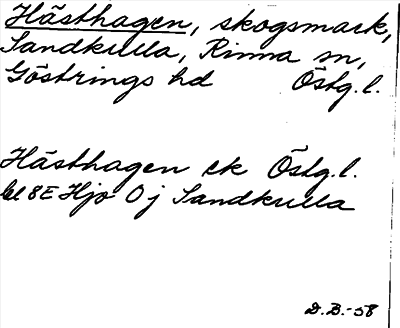 Hästhagen, skogsmark,
Sandkulla, Rinna sn,
Göstrings hd Östg.l.
Hästhagen ek Östg.l.
bl 8E Hjo 0j Sandkulla
D.B.-58